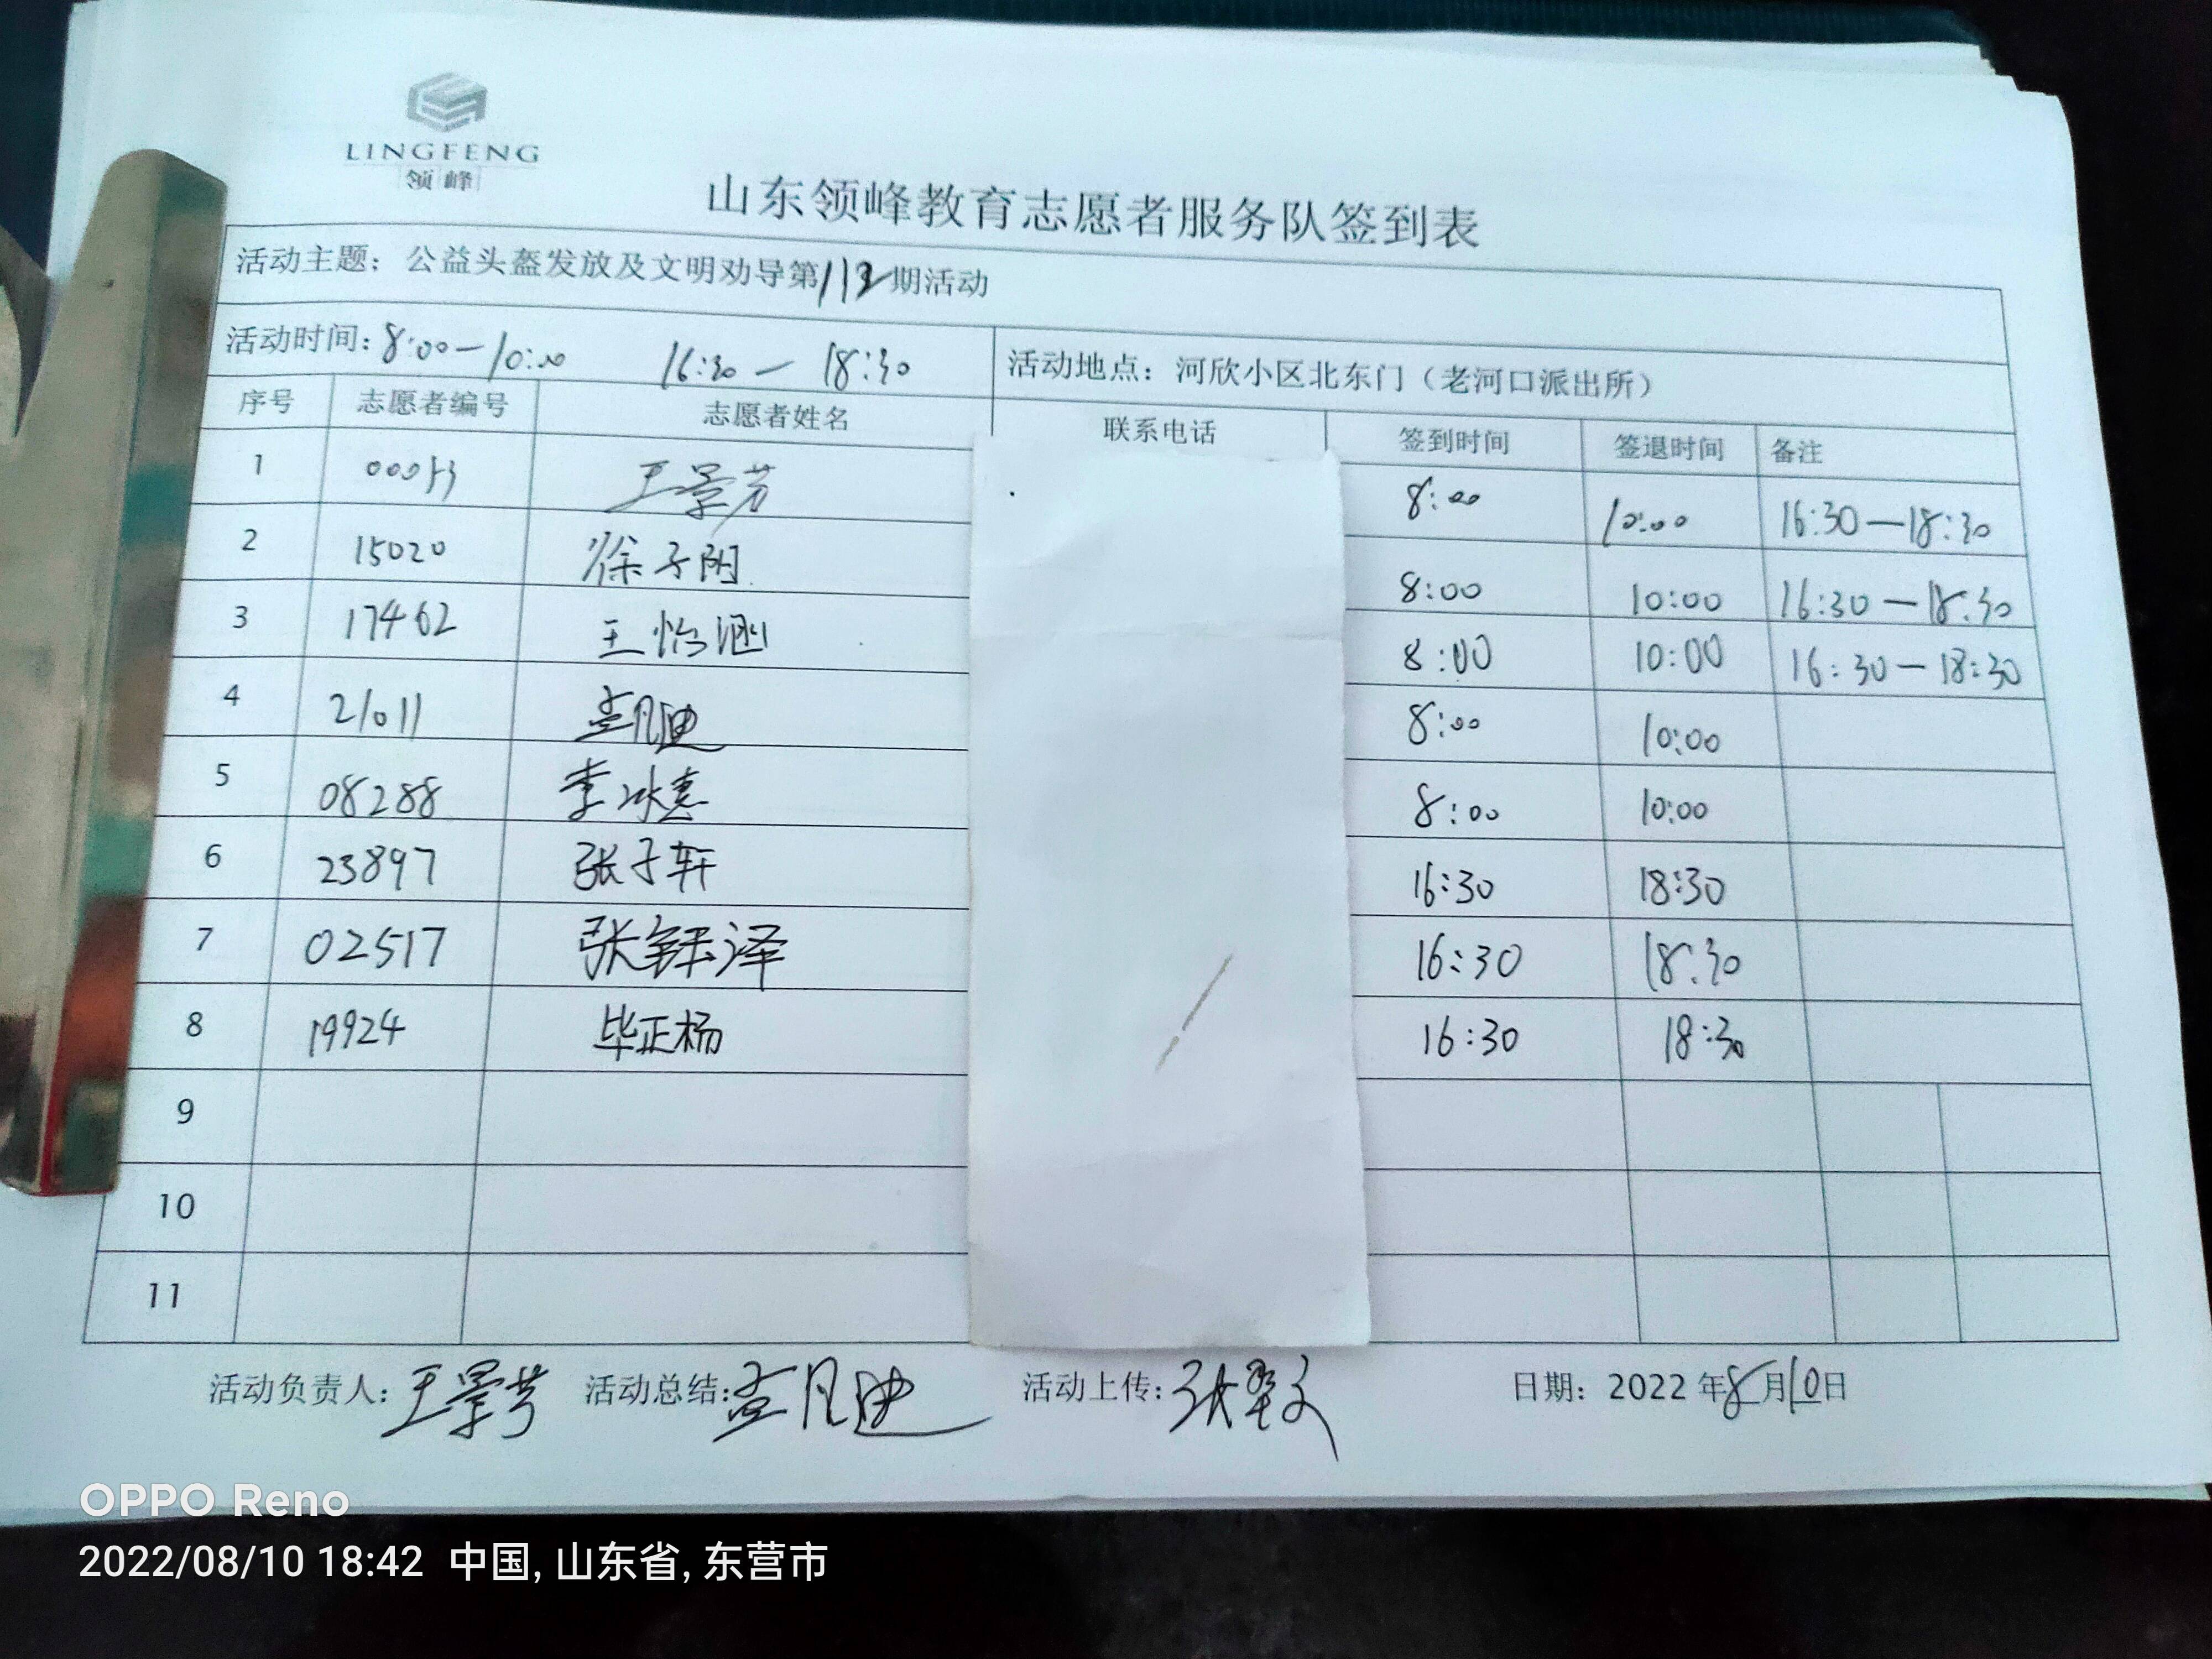 LINGFENG
领峰
山东领峰教育志愿者服务队签到表
活动主题：公益头盔发放及文明劝导第 期活动
活动时间：8:00—10:00 16:30—18:30 活动地点：河欣小区北东门（老河口派出所）
序号 志愿者编号 志愿者姓名 联系电话 签到时间 签退时间 备注
1 王景芳 8:00 10:00 16:30—18:30
2 15020 徐子阴 8:00 10:00 16:30—18:30
3 17462 王怡涵 8:00 10:00 16:30—18:30
4 21011 孟凡迪 8:00 10:00
5 08288 李冰 8:00 10:00
6 23897 张子轩 16:30 18:30
7 02517 张 泽 16:30 18:30
8 19924 毕正杨 16:30 18:30
9
10
11
活动负责人：王景芳 活动总结：孟凡迪 活动上传：张 文 日期：2022年8月10日
OPPO Reno
2022/08/10 18:42 中国, 山东省, 东营市